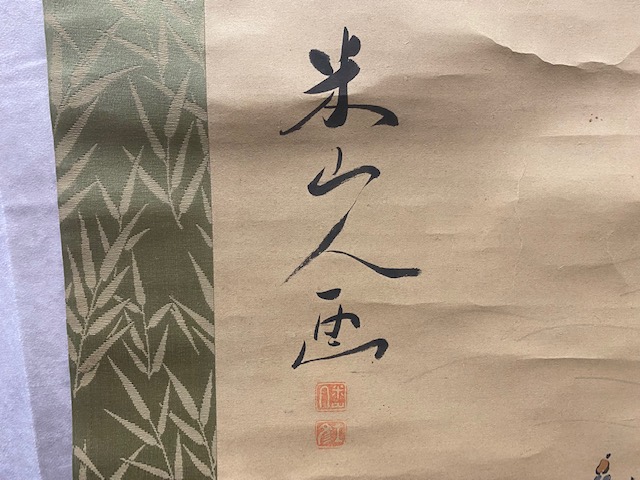 米山人画